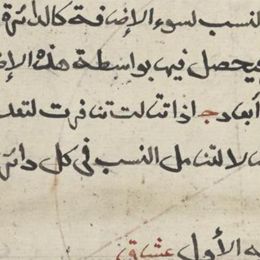 النسب لسوء الإضافة كالدائرة
فيحصل فيها بواسطة هذه الإ
أبعاد ج اذا تتالت تنافرت لتعد
لا لتنامل النسب في كل دائر
الأول عشاق